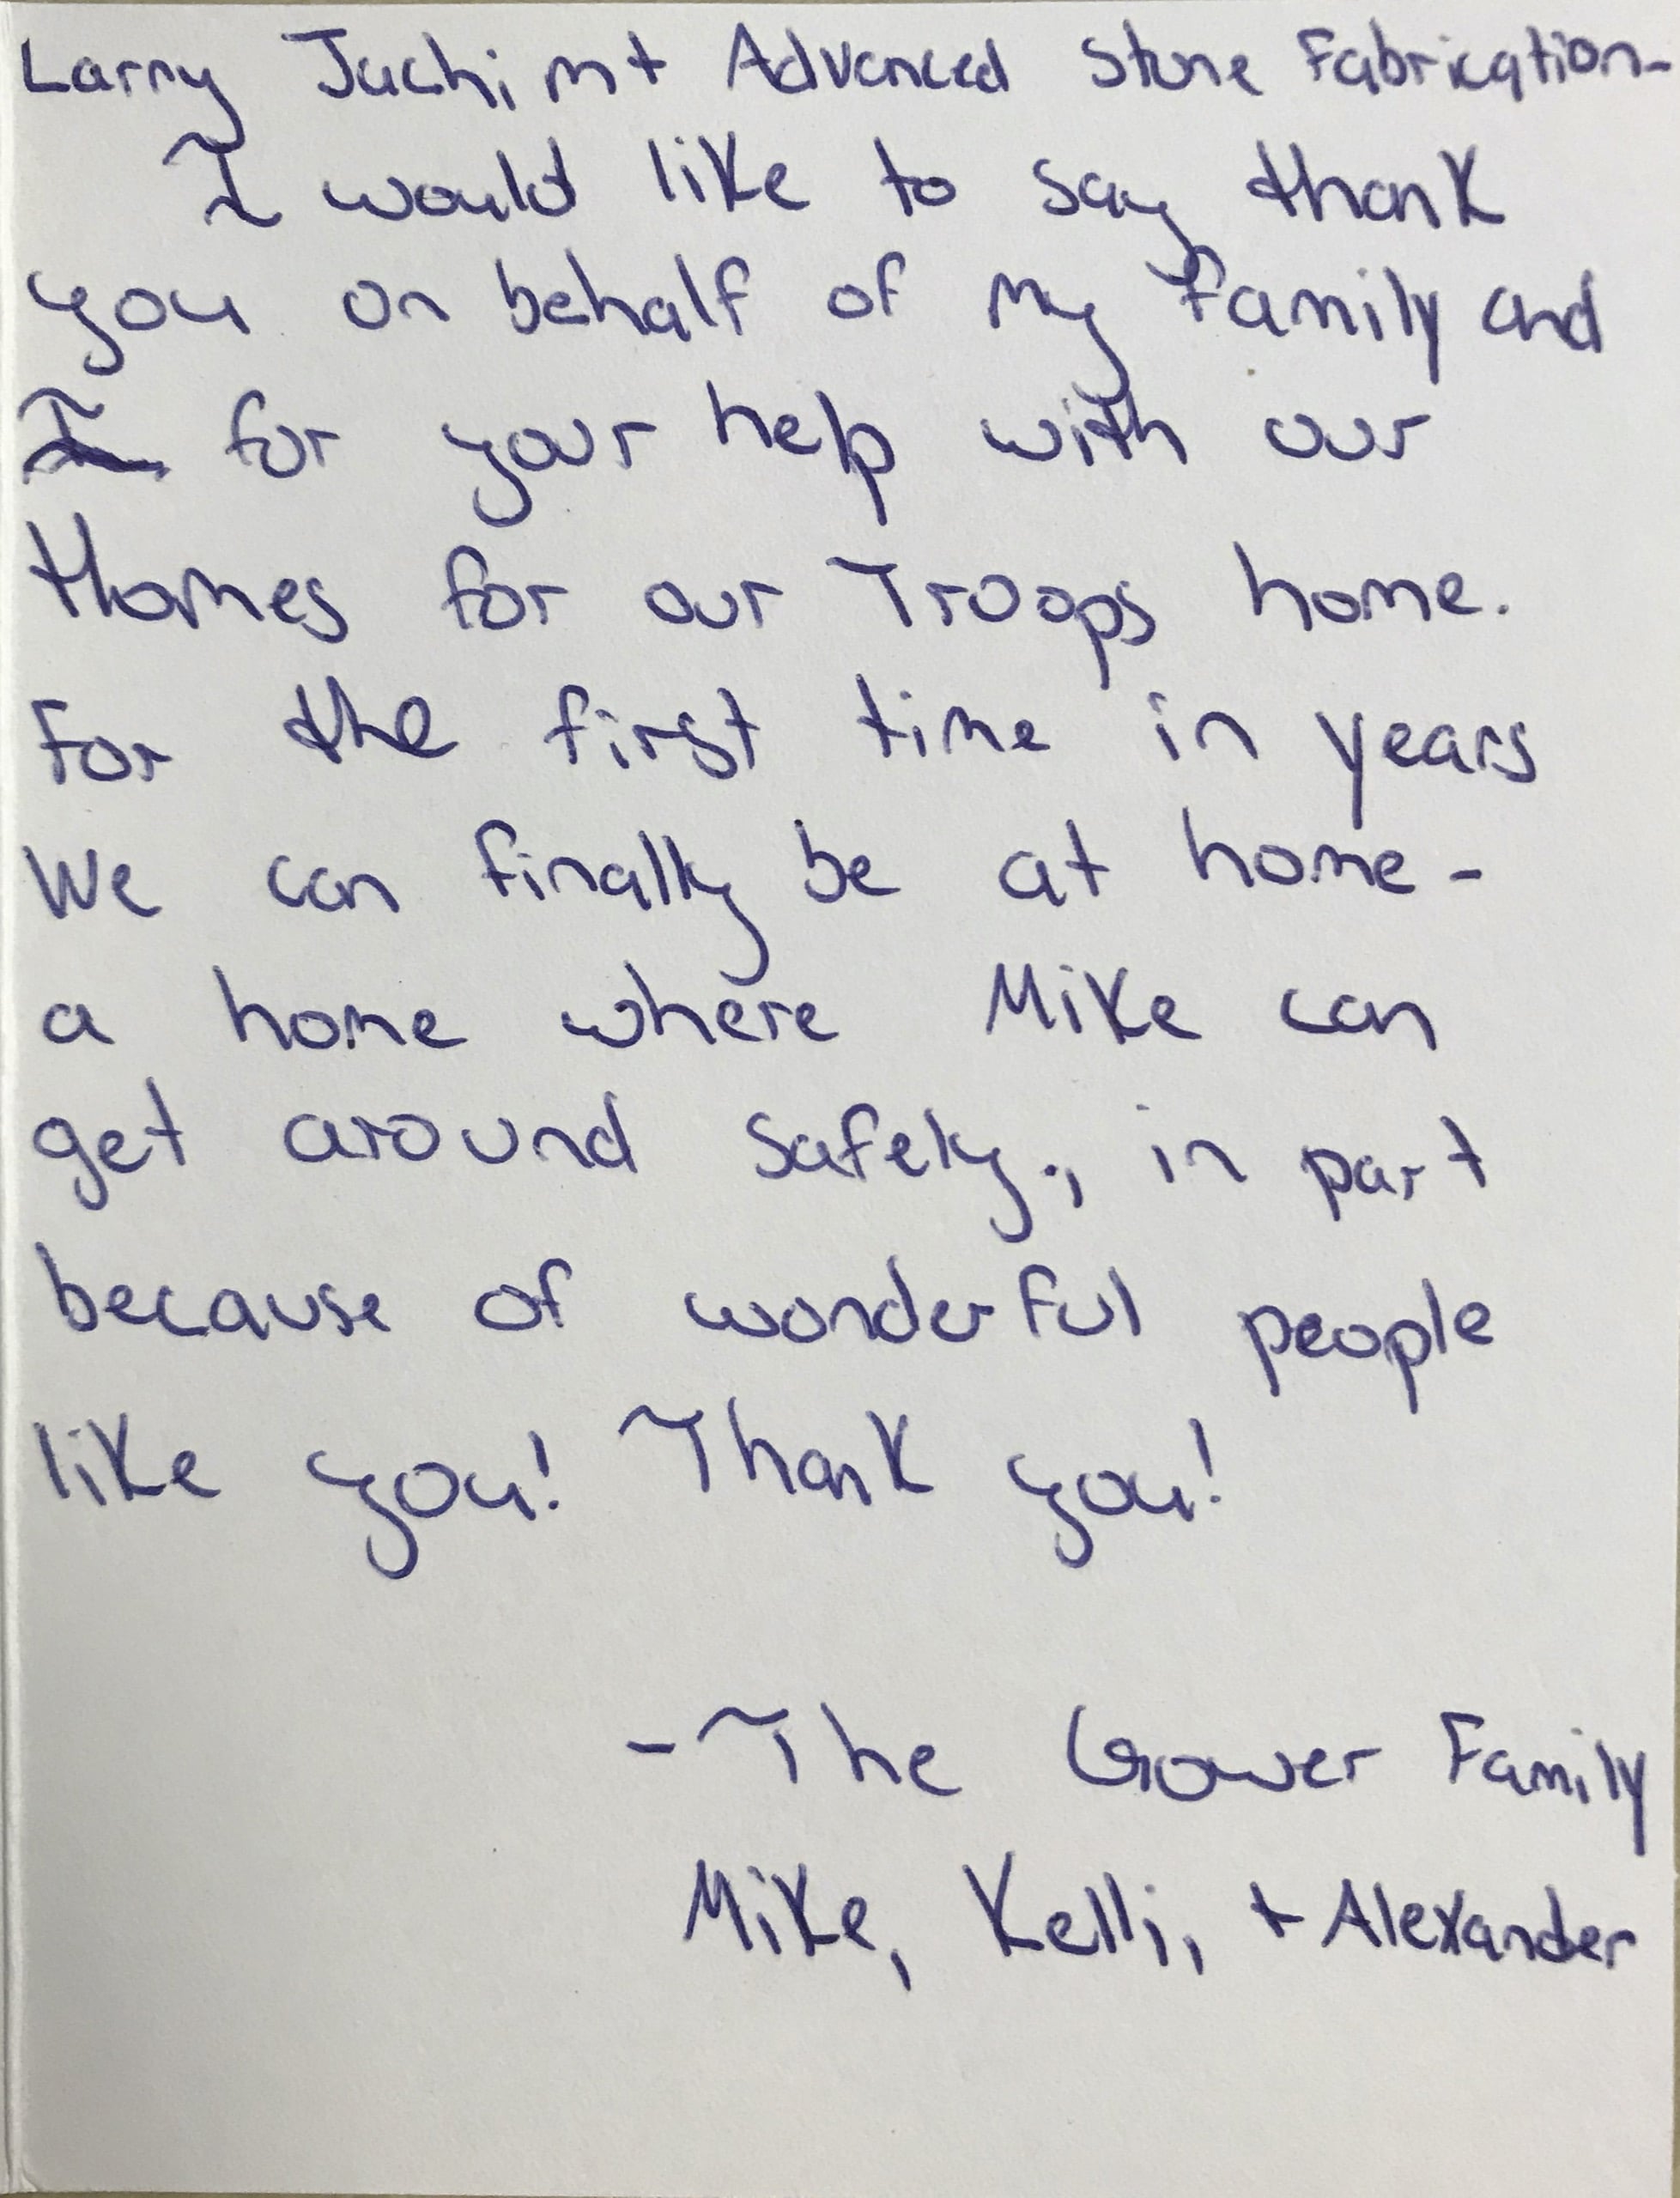 Larry Jachim + Advanced Stone Fabrication-
I would like to say thank
you on behalf of my family and
I for your help with our
Homes for our Troops home.
For the first time in years
we can finally be at home -
a home where Mike can
get around safely., in part
because of wonderful people
like you! Thank you!
- The Gower Family
Mike, Kelli, + Alexander